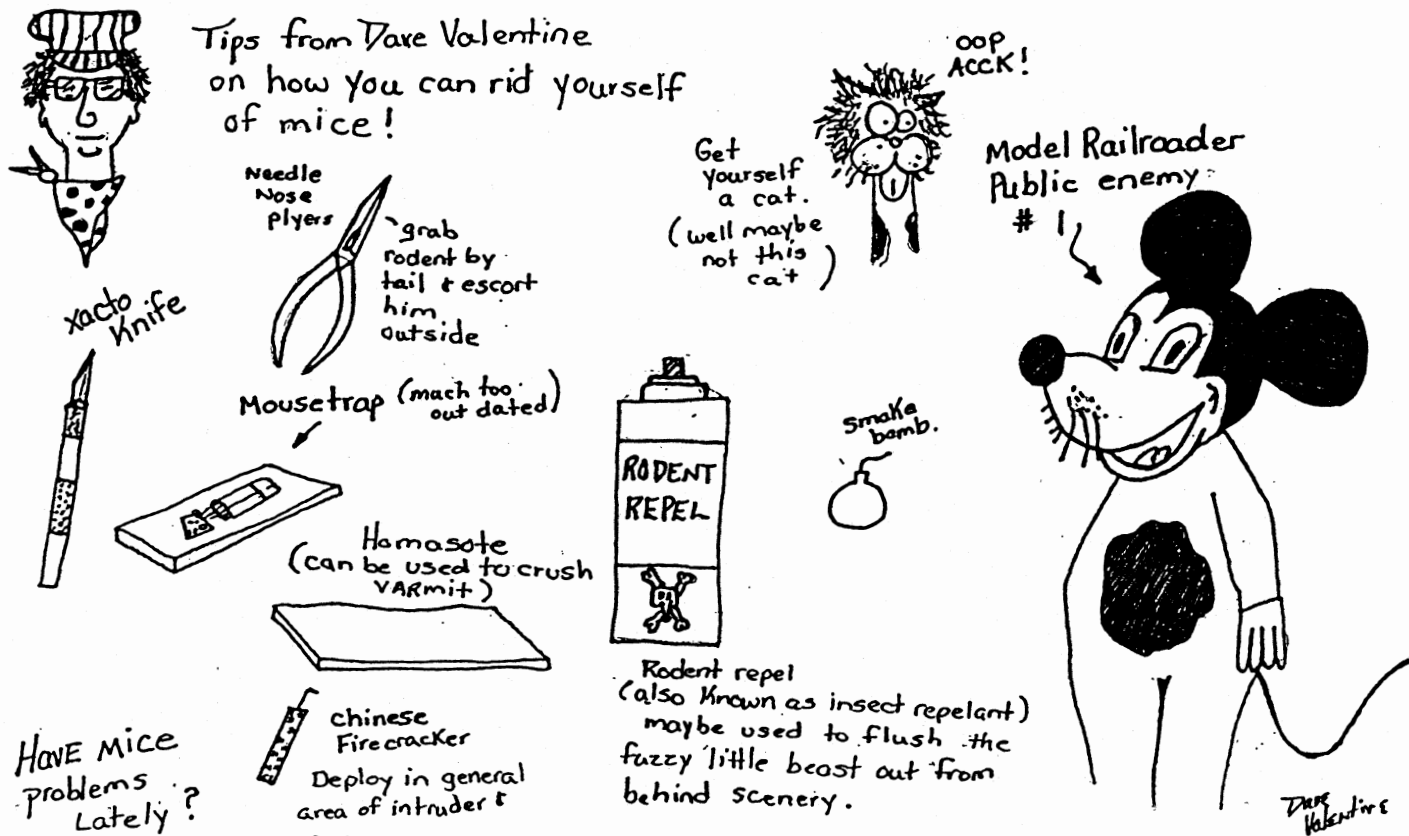 Tips from Dave Valentine
on how you can rid yourself
of mice!
OOP
ACCK!
Get
yourself
a cat.
(well maybe
not this
cat)
Model Railroader
Public enemy
# 1
Needle
Nose
plyers
grab
rodent by
tail & escort
him
outside
xacto
Knife
Mousetrap (mach too
out dated)
smoke
bomb.
RODENT
REPEL
Homasote
(can be used to crush
VARmit)
Rodent repel
(also known as insect repelant)
maybe used to flush the
fuzzy little beast out from
behind scenery.
Chinese
Firecracker
Deploy in general
area of intruder &
HAVE MICE
problems
Lately?
Dave
Valentine